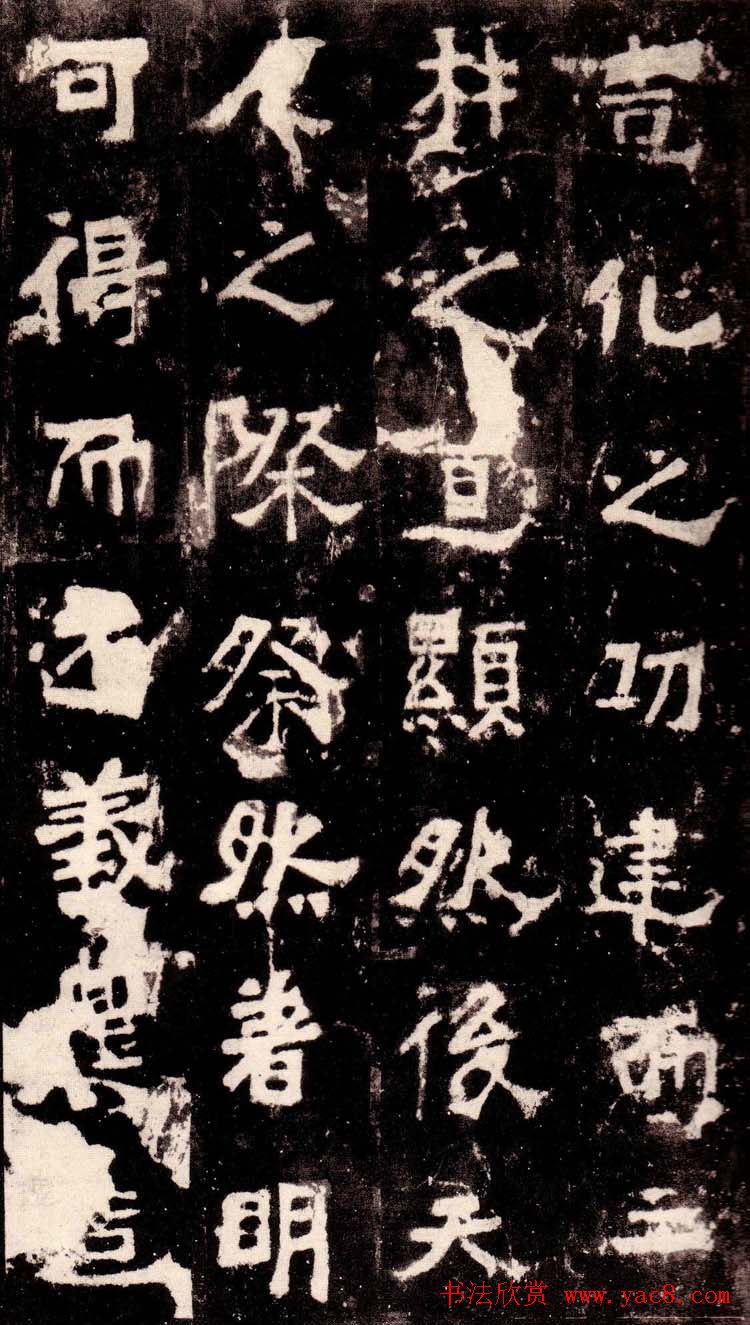 化之功建而二
之直顯然後天
人之際粲然著明
可得而述義
書法欣赏 www.yac8.com